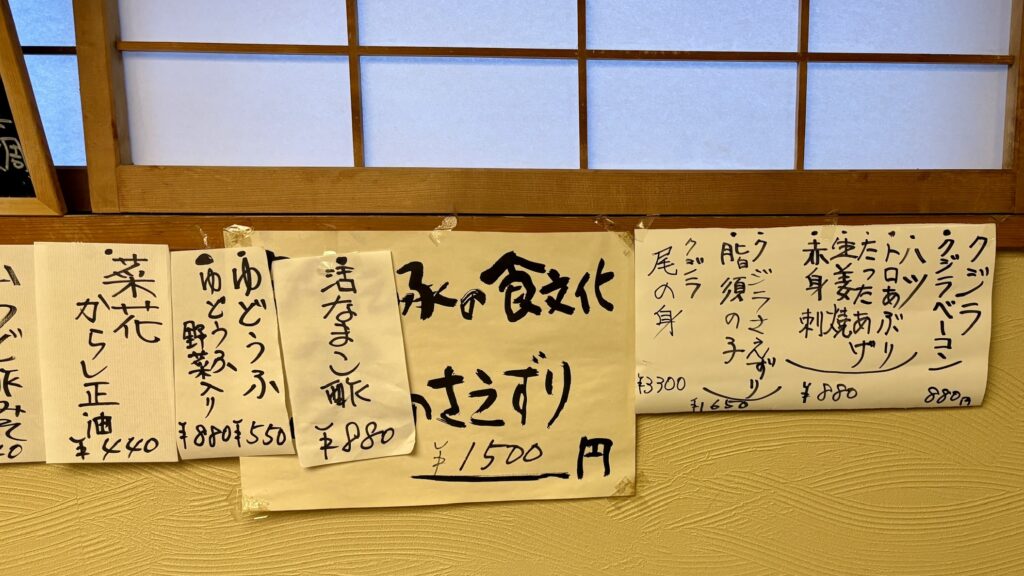 クジラ
クジラベーコン
880円
ハツ
トロあぶり
たったあげ
生姜焼
赤身刺
¥880
クジラさえずり
脂須の子
¥1650
クジラ
尾の身
¥3300
承の食文化
のさえずり
¥1500円
活なまこ酢
¥880
ゆどうふ
¥550
ゆどうふ
野菜入り
¥880
菜花
からし正油
¥440